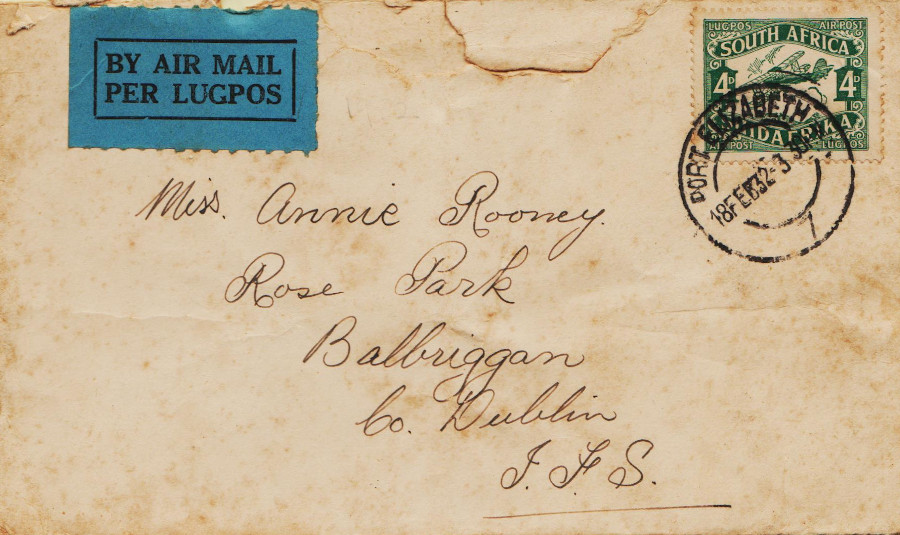 BY AIR MAIL
PER LUGPOS
LUGPOS AIR POST
SOUTH AFRICA
4D 4D
SUIDAFRIKA
AIR POST LUGPOS
PORT ELIZABETH
18 FEB 32 - 3
7
Miss. Annie Rooney.
Rose Park
Balbriggan
Co. Dublin
I. F. S.